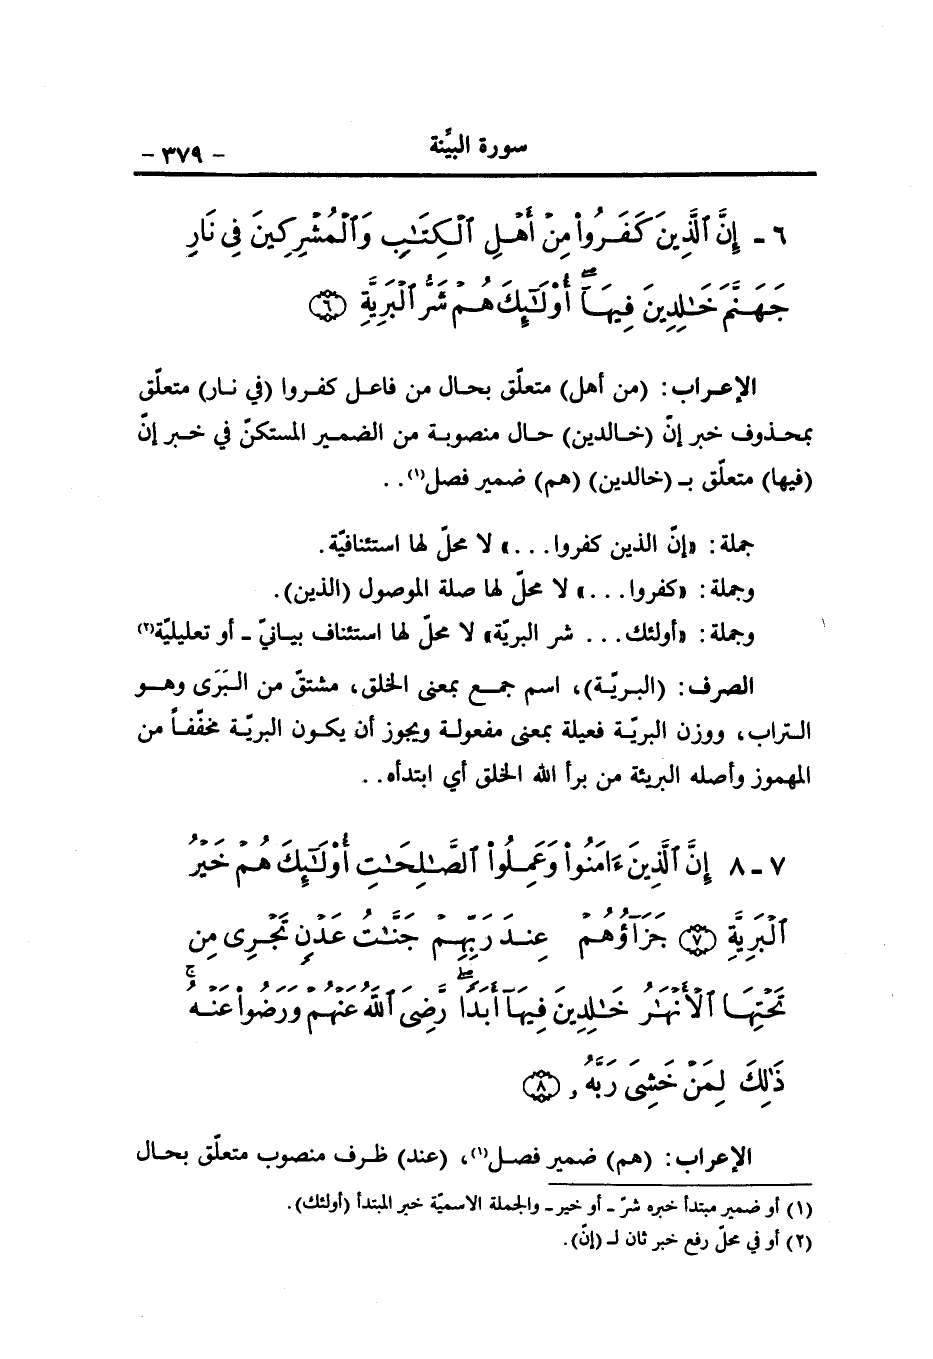 سورة البيّنة
- ٣٧٩ -
٦ - إِنَّ ٱلَّذِينَ كَفَرُواْ مِنْ أَهْلِ ٱلْكِتَٰبِ وَٱلْمُشْرِكِينَ فِى نَارِ
جَهَنَّمَ خَٰلِدِينَ فِيهَآ ۚ أُوْلَٰٓئِكَ هُمْ شَرُّ ٱلْبَرِيَّةِ ٦
الإعراب: (من أهل) متعلّق بحال من فاعل كفروا (في نار) متعلّق
بمحذوف خبر إنّ (خالدين) حال منصوبة من الضمير المستكنّ في خبر إنّ
(فيها) متعلّق بـ (خالدين) (هم) ضمير فصل(١). .
جملة: «إنّ الذين كفروا. . .» لا محلّ لها استئنافيّة.
وجملة: «كفروا. . .» لا محلّ لها صلة الموصول (الذين).
وجملة: «أولئك. . . شر البريّة» لا محلّ لها استئناف بيانيّ - أو تعليليّة(٢)
الصرف: (البريّة)، اسم جمع بمعنى الخلق، مشتقّ من البَرَى وهو
التراب، ووزن البريّة فعيلة بمعنى مفعولة ويجوز أن يكون البريّة مخفّفاً من
المهموز وأصله البريئة من برأ الله الخلق أي ابتدأه. .
٧ - ٨ إِنَّ ٱلَّذِينَ ءَامَنُواْ وَعَمِلُواْ ٱلصَّٰلِحَٰتِ أُوْلَٰٓئِكَ هُمْ خَيْرُ
ٱلْبَرِيَّةِ ٧ جَزَآؤُهُمْ عِندَ رَبِّهِمْ جَنَّٰتُ عَدْنٍ تَجْرِى مِن
تَحْتِهَا ٱلْأَنْهَٰرُ خَٰلِدِينَ فِيهَآ أَبَدًا ۖ رَّضِىَ ٱللَّهُ عَنْهُمْ وَرَضُواْ عَنْهُ ۚ
ذَٰلِكَ لِمَنْ خَشِىَ رَبَّهُۥ ٨
الإعراب: (هم) ضمير فصل(١)، (عند) ظرف منصوب متعلّق بحال
(١) أو ضمير مبتدأ خبره شرّ - أو خير - والجملة الاسميّة خبر المبتدأ (أولئك).
(٢) أو في محلّ رفع خبر ثان لـ (إنّ).